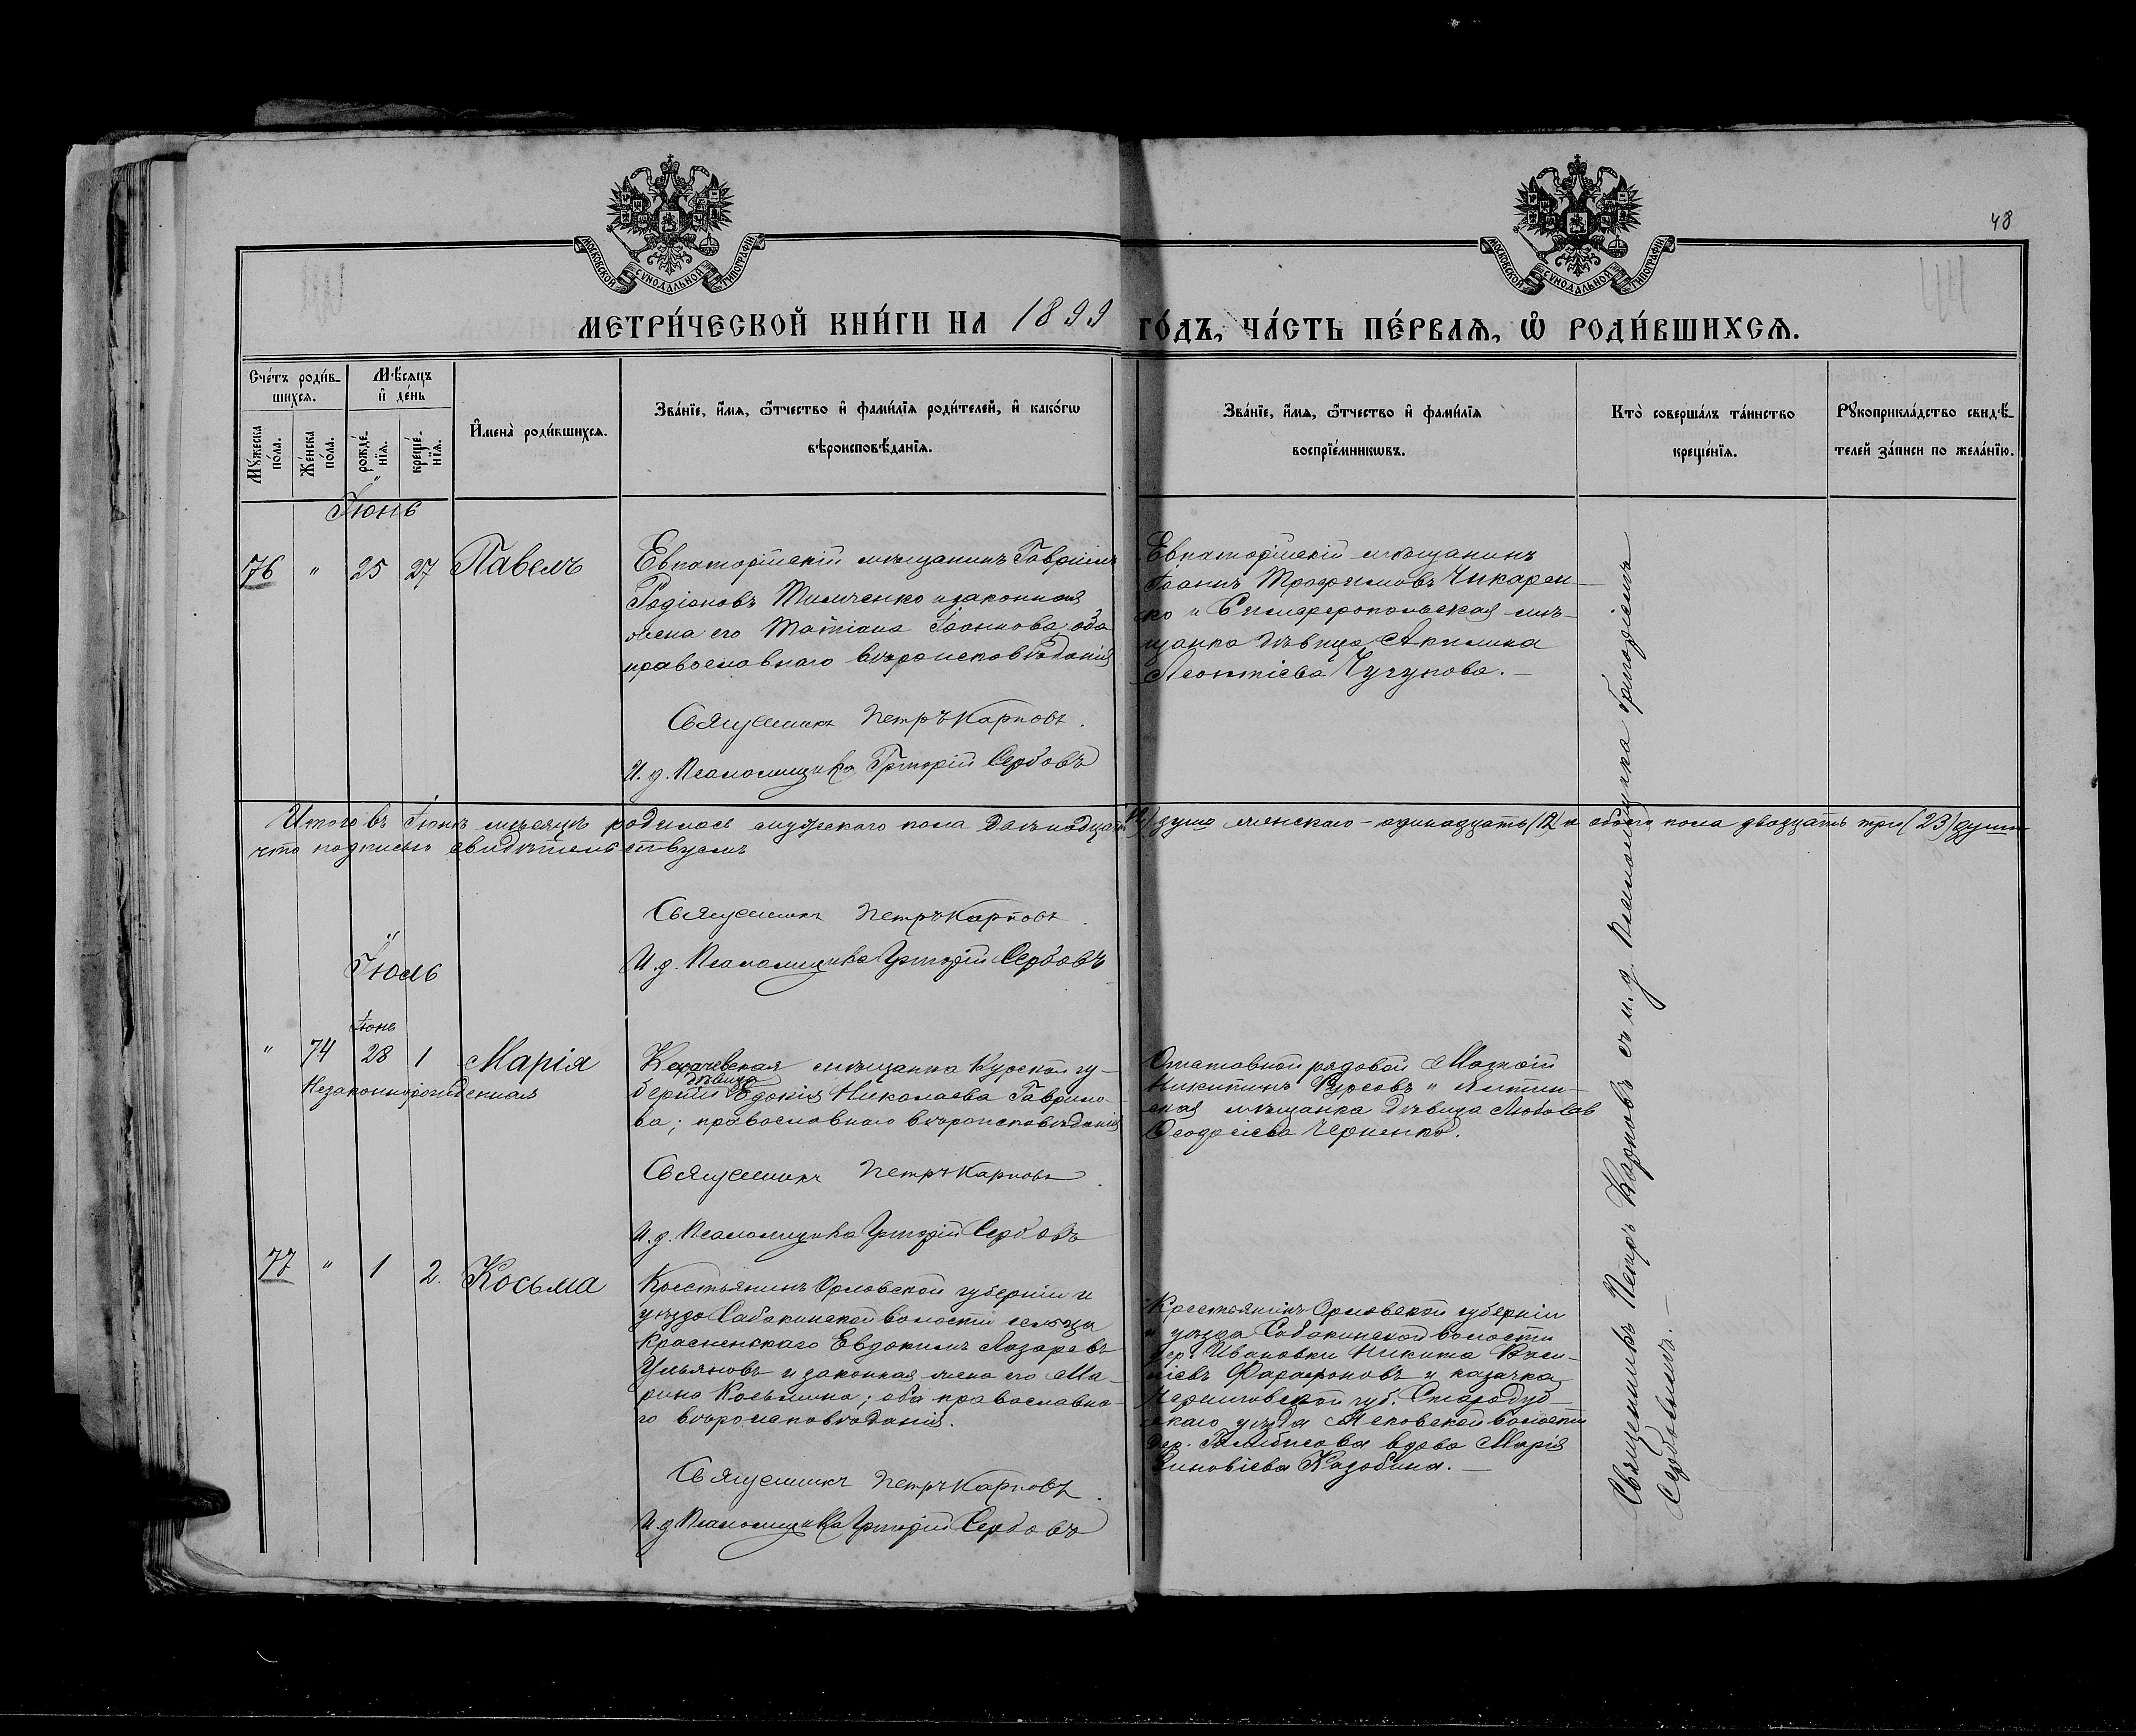 48
МОСКОВСКОЙ СУНОДАЛЬНОЙ ТИПОГРАФІИ
МОСКОВСКОЙ СУНОДАЛЬНОЙ ТИПОГРАФІИ
МЕТРИ́ЧЕСКОЙ КНИ́ГИ НА 1899 ГО́ДЪ, ЧА́СТЬ ПЕ́РВАѦ, Ѽ РОДИ́ВШИХСѦ.
Сче́тъ роди́в-
шихсѧ.
Мꙋ́жеска по́ла.
Же́нска по́ла.
Мѣ́сѧцъ
и҆ де́нь
рожде́-нїѧ.
креще́-нїѧ.
И҆мена̀ роди́вшихсѧ.
Зва́нїе, и҆́мѧ, ѻ҆́тчество и҆ фами́лїѧ роди́телей, и҆ како́гѡ
вѣроисповѣ́данїѧ.
Зва́нїе, и҆́мѧ, ѻ҆́тчество и҆ фами́лїѧ
воспрїе́мникѡвъ.
Кто̀ соверша́лъ та́инство
креще́нїѧ.
Рꙋкоприкла́дство свидѣ́-
телей за́писи по жела́нїю.
Іюнь
76 " 25 27 Павелъ
Евпаторійскій мѣщанинъ Гавріилъ
Родіоновъ Тимченко и законная
жена его Татіана Іоаннова оба
православнаго вѣроисповѣданія
Священникъ Петръ Карповъ.
И. д. Псаломщика Григорій Сербовъ
Евпаторійскій мѣщанинъ
Іоаннъ Трофимовъ Чикарен-
ко и Симферопольская мѣ-
щанка дѣвица Акилина
Леонтіева Чугунова.—
Итого въ Іюнѣ мѣсяцѣ родилось мужескаго пола двѣнадцать (12) душъ женскаго - одинадцать (11) и обоего пола двадцать три (23) души
что подписью свидѣтельствуемъ
Священникъ Петръ Карповъ.
И. д. Псаломщика Григорій Сербовъ
Іюль
Іюнь
" 74 28 1 Марія
Незаконнорожденная
мѣщанка Курской гу-
дѣвица
берніи Евдокія Николаева Гаврило-
ва; православнаго вѣроисповѣданія
Священникъ Петръ Карповъ.
И. д. Псаломщика Григорій Сербовъ
Отставной рядовой
Никитинъ Фурсовъ и Ялтин-
ская мѣщанка дѣвица Любовь
Ѳеодосіева Черненко.
77 " 1 2. Косьма
Крестьянинъ Орловской губерніи и
уѣзда Сабакинской волости сельца
Красненскаго Евдокимъ Лазаревъ
Ульяновъ и законная жена его Ма-
рина Косьмина; оба православна-
го вѣроисповѣданія.
Священникъ Петръ Карповъ.
И. д. Псаломщика Григорій Сербовъ
Крестьянинъ Орловской губерніи
и уѣзда Сабакинской волости
дер. Ивановки Никита
Фарафоновъ и казачка
Черниговской губ. Стародуб-
скаго уѣзда волости
дер. вдова Марія
Зиновіева Казобина.—
Священникъ Петръ Карповъ съ и. д. Псаломщика Григоріемъ
Сербовымъ.—